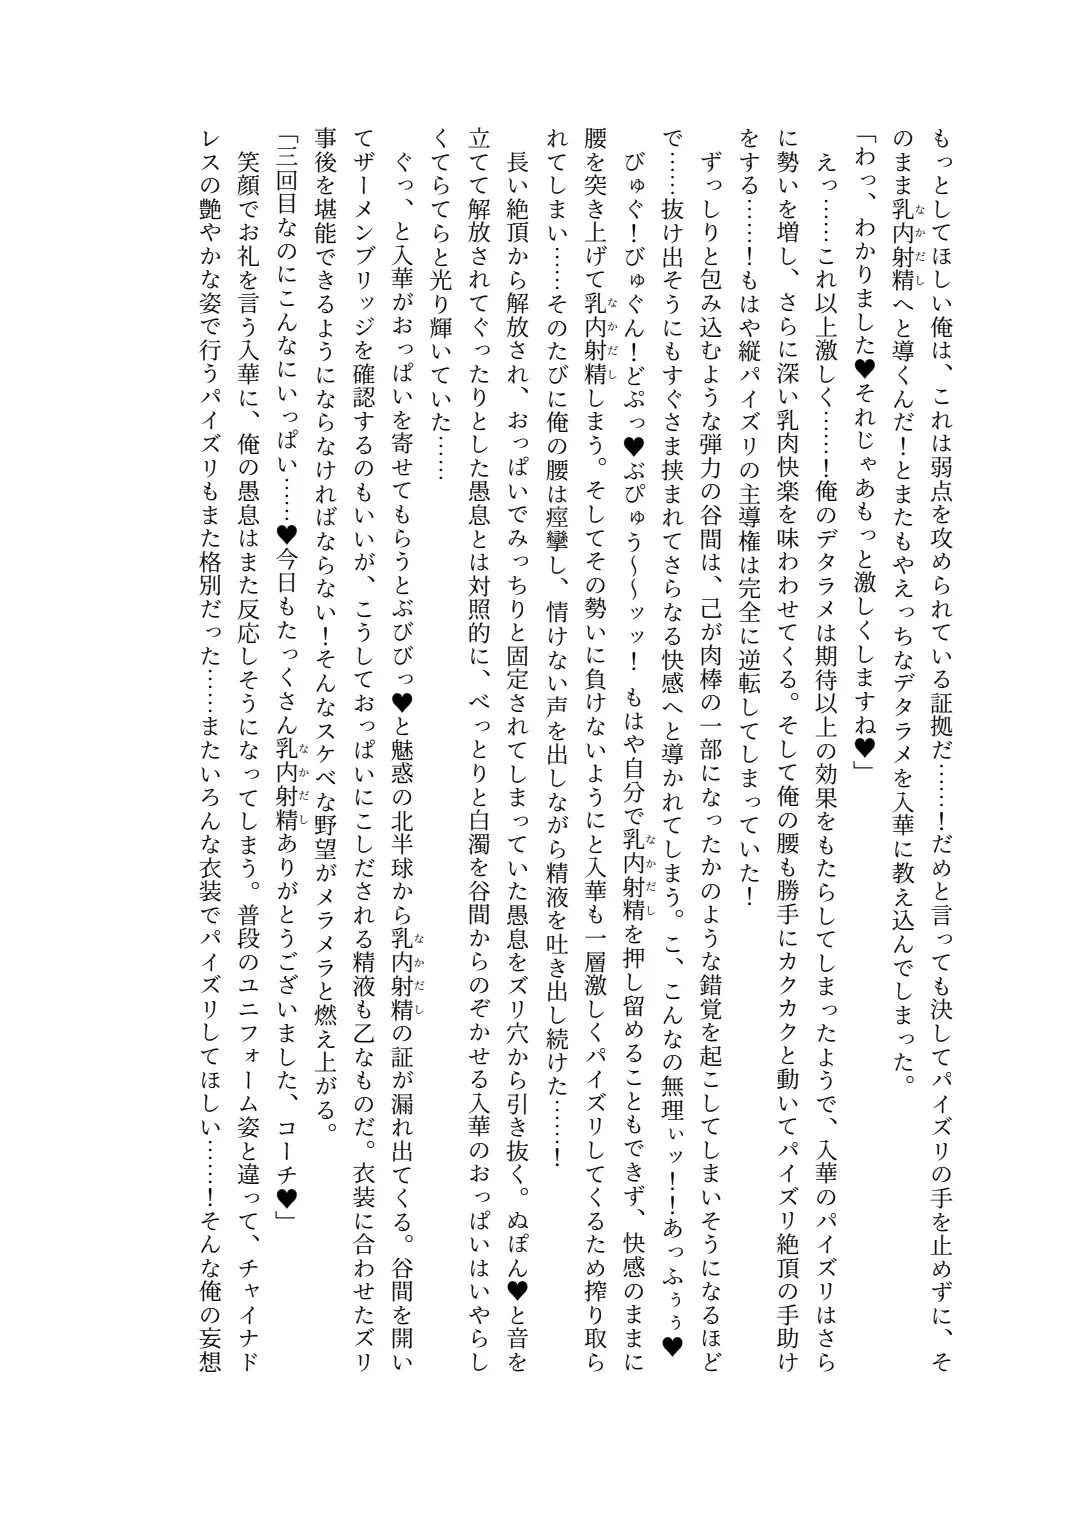 もっとしてほしい俺は、これは弱点を攻められている証拠だ……！だめと言っても決してパイズリの手を止めずに、そ
のまま乳内射精へと導くんだ！とまたもやえっちなデタラメを入華に教え込んでしまった。
「わっ、わかりました♥それじゃあもっと激しくしますね♥」
　えっ……これ以上激しく……！俺のデタラメは期待以上の効果をもたらしてしまったようで、入華のパイズリはさら
に勢いを増し、さらに深い乳肉快楽を味わわせてくる。そして俺の腰も勝手にカクカクと動いてパイズリ絶頂の手助け
をする……！もはや縦パイズリの主導権は完全に逆転してしまっていた！
　ずっしりと包み込むような弾力の谷間は、己が肉棒の一部になったかのような錯覚を起こしてしまいそうになるほど
で……抜け出そうにもすぐさま挟まれてさらなる快感へと導かれてしまう。こ、こんなの無理ぃッ！！あっふぅぅ♥
　びゅぐ！びゅぐん！どぷっ♥ぶぴゅう～～ッッ！　もはや自分で乳内射精を押し留めることもできず、快感のままに
腰を突き上げて乳内射精しまう。そしてその勢いに負けないようにと入華も一層激しくパイズリしてくるため搾り取ら
れてしまい……そのたびに俺の腰は痙攣し、情けない声を出しながら精液を吐き出し続けた……！
　長い絶頂から解放され、おっぱいでみっちりと固定されてしまっていた愚息をズリ穴から引き抜く。ぬぽん♥と音を
立てて解放されてぐったりとした愚息とは対照的に、べっとりと白濁を谷間からのぞかせる入華のおっぱいはいやらし
くてらてらと光り輝いていた……
　ぐっ、と入華がおっぱいを寄せてもらうとぶびびっ♥と魅惑の北半球から乳内射精の証が漏れ出てくる。谷間を開い
てザーメンブリッジを確認するのもいいが、こうしておっぱいにこしだされる精液も乙なものだ。衣装に合わせたズリ
事後を堪能できるようにならなければならない！そんなスケベな野望がメラメラと燃え上がる。
「三回目なのにこんなにいっぱい……♥今日もたっくさん乳内射精ありがとうございました、コーチ♥」
　笑顔でお礼を言う入華に、俺の愚息はまた反応しそうになってしまう。普段のユニフォーム姿と違って、チャイナド
レスの艶やかな姿で行うパイズリもまた格別だった……またいろんな衣装でパイズリしてほしい……！そんな俺の妄想